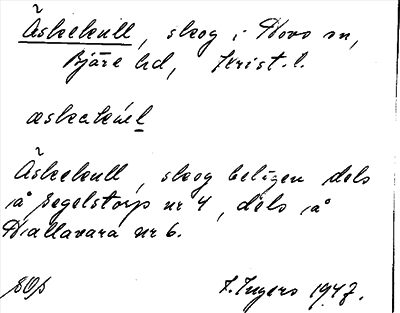 Äskekull, skog i Hovs sn,
Bjäre hd, Krist. l.
æskekúl
Äskekull, skog belägen dels
å Segelstorp nr 4, dels å
Dallavara nr 6.
F. Ingers 1947.